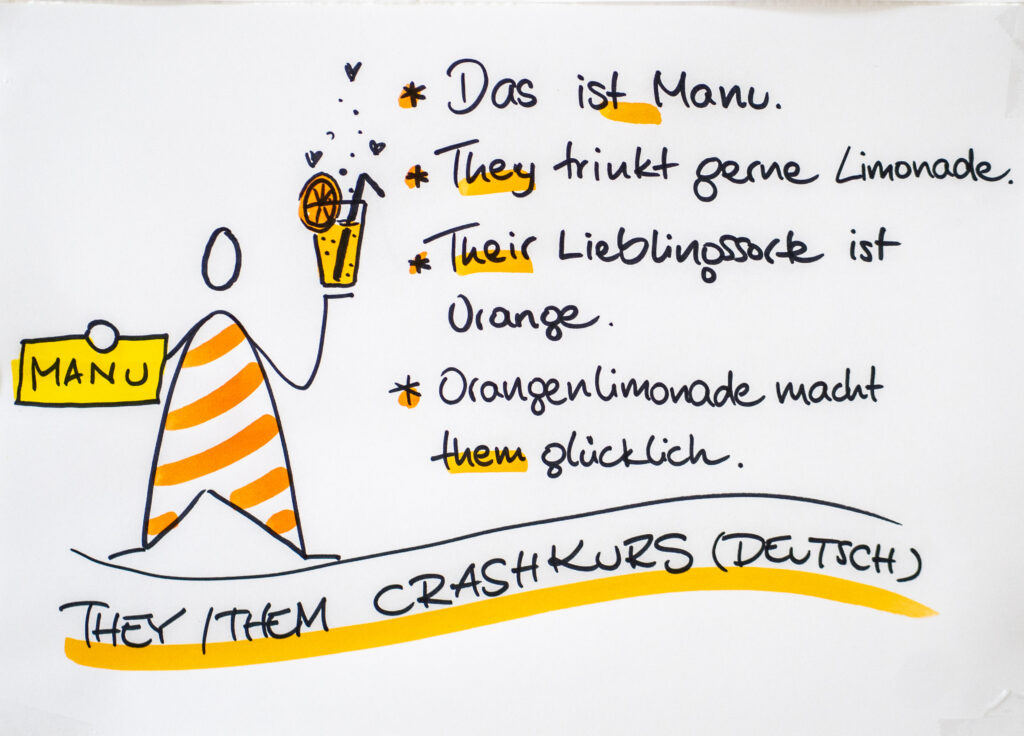 * Das ist Manu.
* They trinkt gerne Limonade.
* Their Lieblingssorte ist
Orange.
* Orangenlimonade macht
them glücklich.
MANU
THEY/THEM CRASHKURS (DEUTSCH)